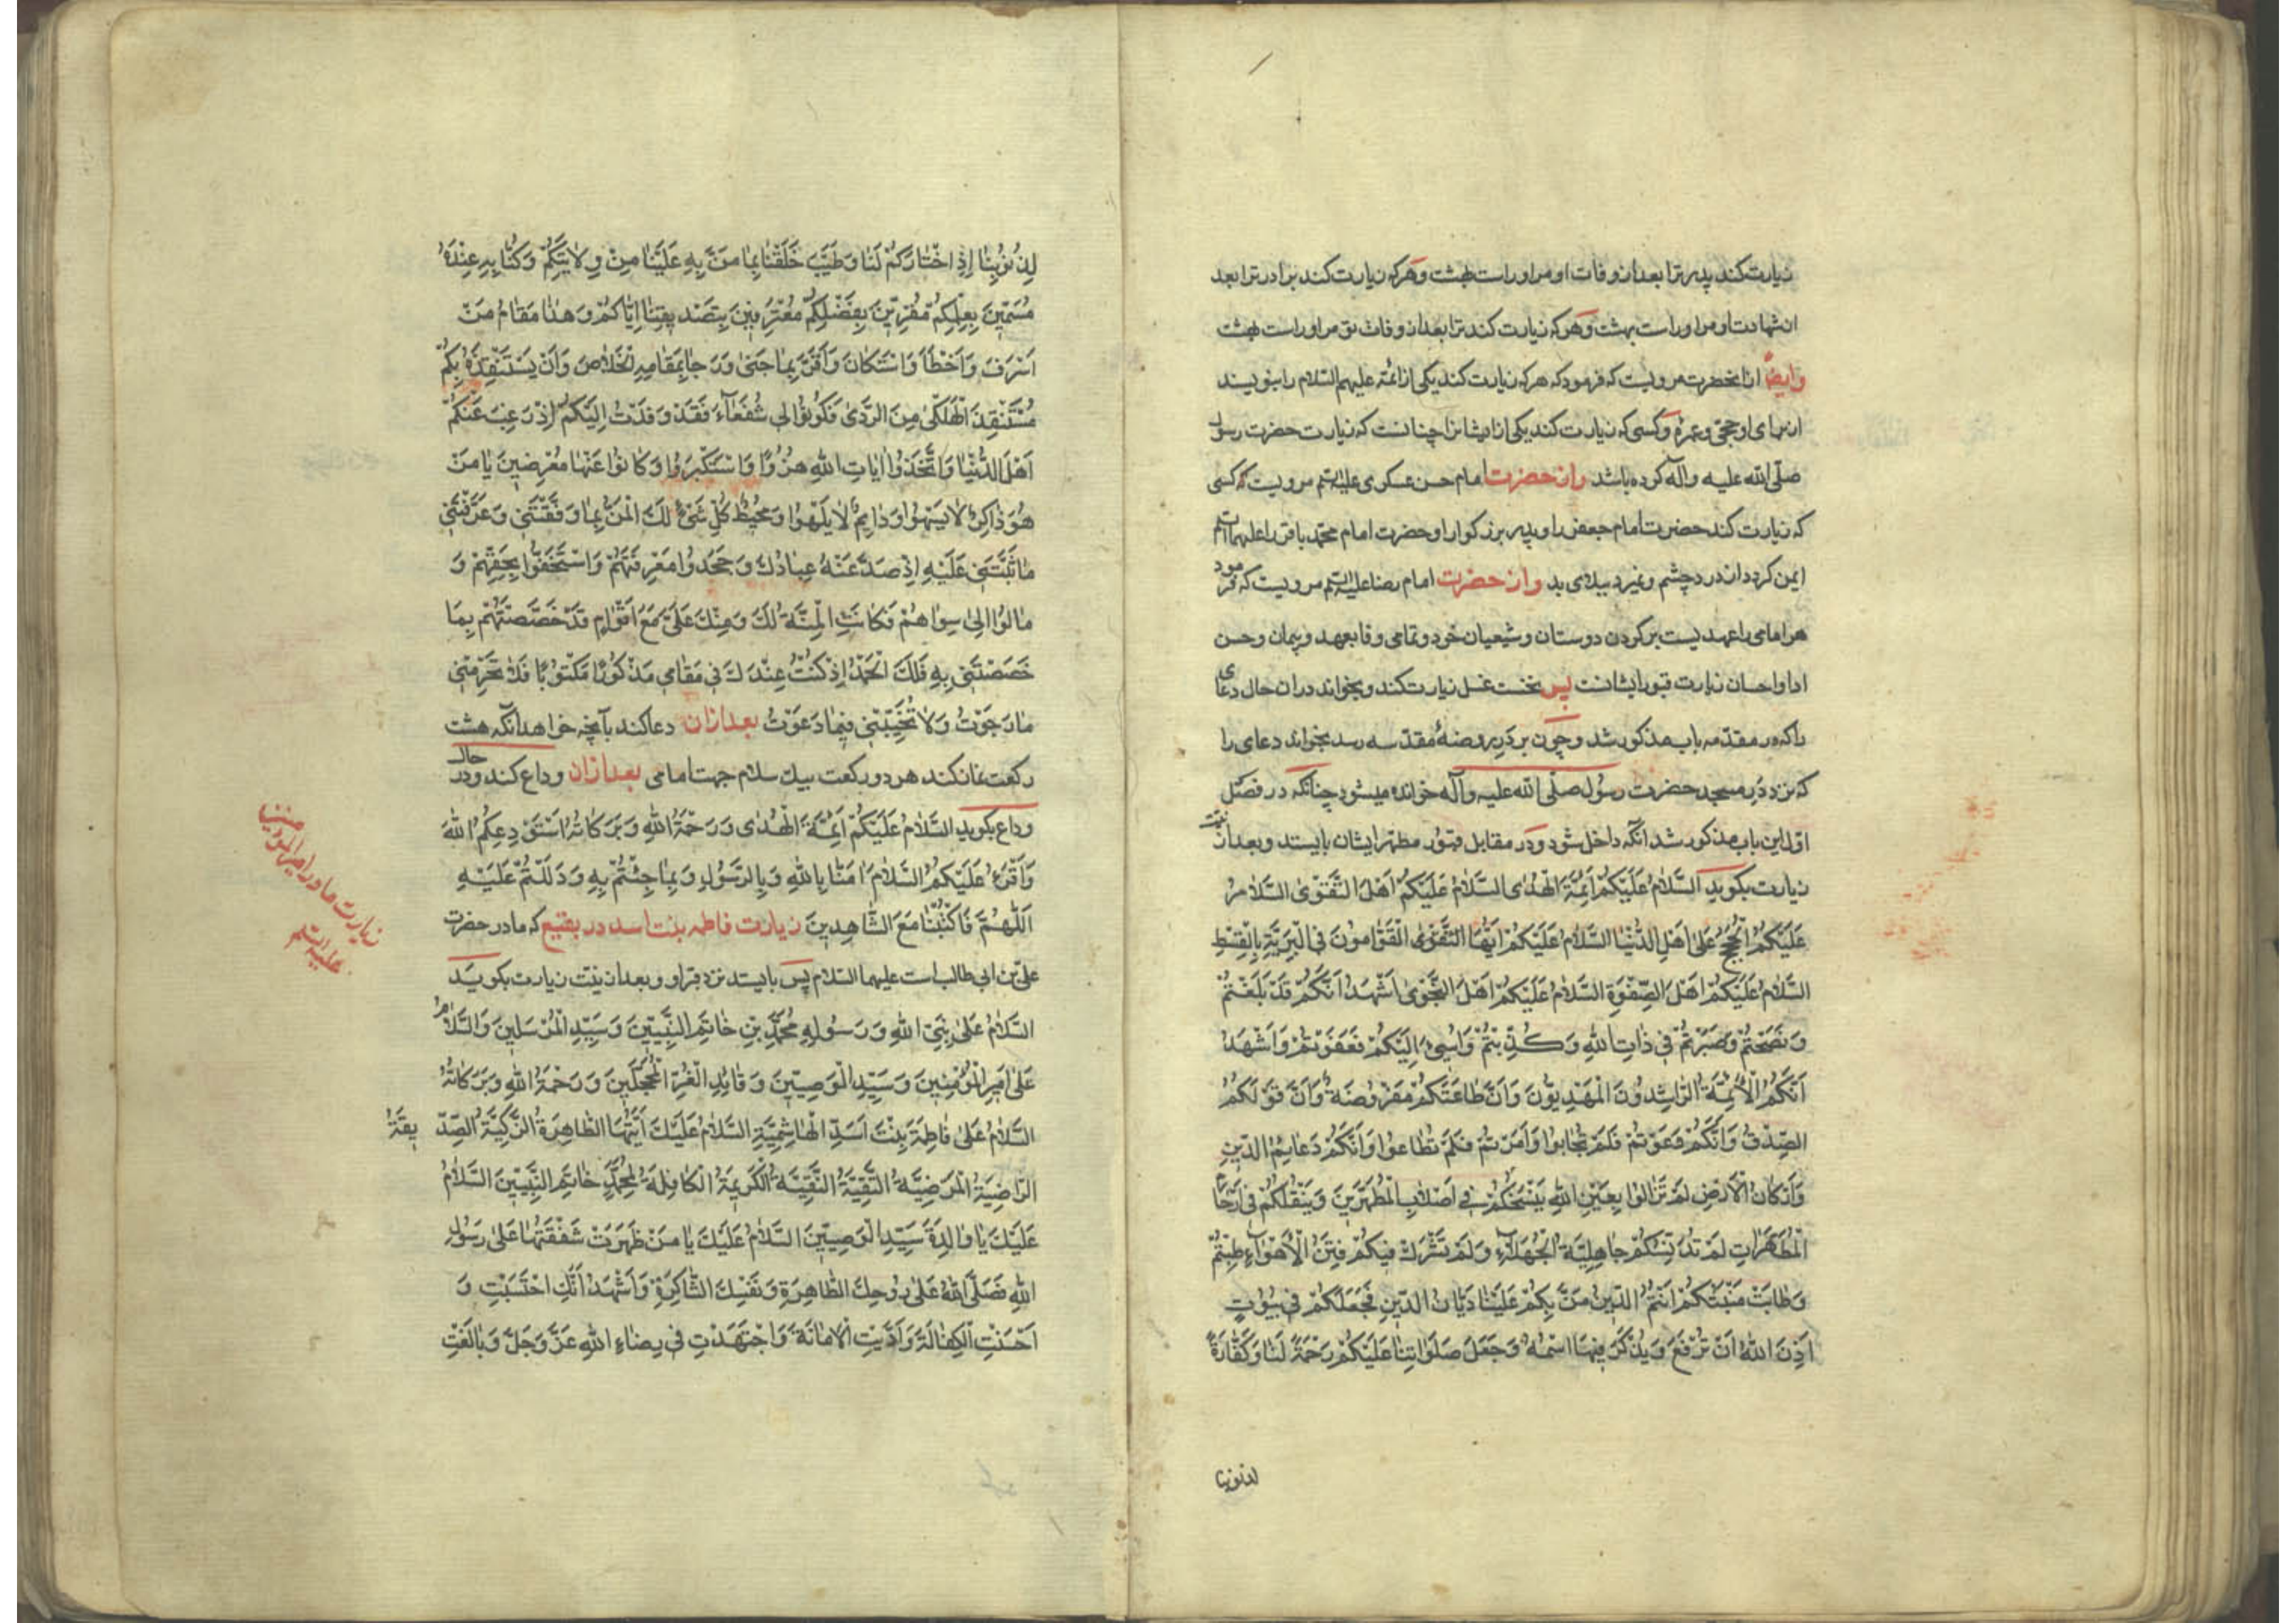 زیارت کند پدر ترا بعد از وفات او مر او راست بهشت و هر که زیارت کند برادر ترا بعد
از شهادت او مر او راست بهشت و هر که زیارت کند ترا بعد از وفات تو مر او راست بهشت
وایضاً از انحضرت مرویست که فرمود که هر که زیارت کند یکی از ائمه علیهم السلام را بنویسند
از برای او حجی و عمرهٔ و کسی که زیارت کند یکی از ایشانرا چنانست که زیارت حضرت رسول
صلّی الله علیه وآله کرده باشد و از حضرت امام حسن عسکری علیه السّلم مرویست که کسی
که زیارت کند حضرت امام جعفر را و پدر بزرکوار او حضرت امام محمّد باقر را علیهما السلم
ایمن کردد از درد چشم و نمیرد ببلای بد و از حضرت امام رضا علیه السّلم مرویست که فرمود
هر امامی را عهدیست بر کردن دوستان و شیعیان خود و تمامی وفا بعهد و پیمان و حسن
ادا و احسان زیارت قبور ایشانست پس نخست غسل زیارت کند و بخواند در ان حال دعای
را که در مقدّمه باب مذکور شد و چون بر در روضهٔ مقدّسه رسد بخواند دعای را
که نزد در مسجد حضرت رسول صلّی الله علیه وآله خوانده میشود چنانکه در فصل
اوّل این باب مذکور شد انکه داخل شود و در مقابل قبور مطهر ایشان بایستد و بعد از نیّت
زیارت بکوید اَلسَّلامُ عَلَیْکُمْ اَئِمَّةَ الْهُدٰی السَّلامُ عَلَیْکُمْ اَهْلَ التَّقْوٰی السَّلامُ
عَلَیْکُمُ الْحُجَجُ عَلٰی اَهْلِ الدُّنْیٰا السَّلامُ عَلَیْکُمْ اَیُّهَا القَوّٰامُونَ فی الْبَرِیَّةِ بِالْقِسْطِ
السَّلامُ عَلَیْکُمْ اَهْلَ الصِّفْوَةِ السَّلامُ عَلَیْکُمْ اَهْلَ النَّجْوٰی اَشْهَدُ اَنَّکُمْ قَدْ بَلَّغْتُمْ
وَنَصَحْتُمْ وَصَبَرْتُمْ فی ذٰاتِ اللهِ وَکُذِّبْتُمْ وَاُسیٓءَ اِلَیْکُمْ فَعَفَوْتُمْ وَاَشْهَدُ
اَنَّکُمُ الْاَئِمَّةُ الرّٰاشِدُونَ الْمَهْدِیُّونَ وَاَنَّ طٰاعَتَکُمْ مَفْرُوضَةٌ وَاَنَّ قَوْلَکُمُ
الصِّدْقُ وَاَنَّکُمْ دَعَوْتُمْ فَلَمْ تُجٰابوا وَاَمَرْتُمْ فَلَمْ تُطٰاعوا وَاَنَّکُمْ دَعٰایِمُ الدّینِ
وَاَرْکٰانُ الْاَرْضِ لَمْ تَزٰالوُا بِعَیْنِ اللهِ یَنْسَخُکُمْ فی اَصْلٰابِ الْمُطَهَّرینَ وَیَنْقُلُکُمْ فی اَرْحٰامِ
الْمُطَهَّرٰاتِ لَمْ تُدَنِّسْکُمْ جٰاهِلِیَّةُ الْجُهَلآءِ وَلَمْ تَشْرَكْ فیکُمْ فِتَنُ الْاَهْوٰآءِ طِبْتُمْ
وَطٰابَتْ مَنْبَتُکُمْ اَنْتُمُ الَّذینَ مَنَّ بِکُمْ عَلَیْنٰا دَیّٰانُ الدّینِ فَجَعَلَکُمْ فی بُیُوتٍ
اَذِنَ اللهُ اَنْ تُرْفَعَ وَیُذْکَرَ فیهَا اسْمُهُ وَجَعَلَ صَلَوٰاتِنٰا عَلَیْکُمْ رَحْمَةً لَنٰا وَکَفّٰارَةً
لذنوبنا
لِذُنُوبِنٰا اِذِ اخْتٰارَکُمْ لَنٰا وَطَیَّبَ خَلَقْنٰا بِمٰا مَنَّ بِهِ عَلَیْنٰا مِنْ وِلٰایَتِکُمْ وَکُنّٰا بِهِ عِنْدَهُ
مُسَمّینَ بِعِلْمِکُمْ مُقِرّینَ بِفَضْلِکُمْ مُعْتَرِفینَ بِتَصْدیقِنٰا اِیّٰاکُمْ وَهٰذٰا مَقٰامُ مَنْ
اَسْرَفَ وَاَخْطَأَ وَاسْتَکٰانَ وَاَقَرَّ بِمٰا جَنیٰ وَرَجٰا بِمَقٰامِهِ الْخَلٰاصَ وَاَنْ یَسْتَنْقِذَهُ بِکُمْ
مُسْتَنْقِذُ الْهَلْکٰی مِنَ الرَّدٰی فَکُونُوا لی شُفَعٰآءَ فَقَدْ وَفَدْتُ اِلَیْکُمْ اِذْ رَغِبَ عَنْکُمْ
اَهْلُ الدُّنْیٰا وَاتَّخَذُوا اٰیٰاتِ اللهِ هُزُوًا وَاسْتَکْبَرُوا وَکٰانُوا عَنْهٰا مُعْرِضینَ یٰا مَنْ
هُوَ ذٰاکِرٌ لٰا یَسْهُوا وَدٰایِمٌ لٰا یَلْهُوا وَمُحیٌط کُلِّ شَیْءٍ لَكَ الْمَنُّ بِمٰا وَفَّقْتَنی وَعَرَّفْتَنی
مٰا ثَبَّتَّنی عَلَیْهِ اِذْ صَدَّ عَنْهُ عِبٰادُكَ وَجَحَدُوا مَعْرِفَتَهُمْ وَاسْتَخَفُّوا بِحَقِّهِمْ وَ
مٰالُوا اِلیٰ سِوٰاهُمْ فَکٰانَتِ الْمِنَّةُ لَكَ وَمِنْكَ عَلَیَّ مَعَ اَقْوٰامٍ قَدْ خَصَصْتَهُمْ بِمٰا
خَصَصْتَنی بِهِ فَلَكَ الْحَمْدُ اِذْ کُنْتُ عِنْدَكَ فی مَقٰامی مَذْکُورًا مَکْتُوبًا فَلٰا تَحْرِمْنی
مٰا رَجَوْتُ وَلٰا تُخَیِّبْنی فیمٰا دَعَوْتُ بعد ازان دعا کند بآنچه خواهد انکه هشت
رکعت نماز کند هر دو رکعت بیك سلام جهت امامی بعد ازان وداع کند و در حال
وداع بکوید اَلسَّلامُ عَلَیْکُمْ اَئِمَّةَ الْهُدٰی وَرَحْمَةُ اللهِ وَبَرَکٰاتُهُ اَسْتَوْدِعُکُمُ اللهَ
وَاَقْرَءُ عَلَیْکُمُ السَّلٰامَ اٰمَنّٰا بِاللهِ وَبِالرَّسُولِ وَبِمٰا جِئْتُمْ بِهِ وَدَلَلْتُمْ عَلَیْهِ
اَللّٰهُمَّ فَاکْتُبْنٰا مَعَ الشّٰاهِدینَ زیارت فاطمه بنت اسد در بقیع که مادر حضرت
علیّ بن ابی طالب است علیهما السّلام پس بایستد نزد قبر او و بعد از نیّت زیارت بکوید
السَّلٰامُ عَلیٰ نَبِیِّ اللهِ وَرَسُولِهِ مُحَمَّدِ بْنِ خٰاتِمِ النَّبِیّینَ وَسَیِّدِ الْمُرْسَلینَ وَالسَّلٰامُ
عَلیٰ اَمیرِ الْمُؤْمِنینَ وَسَیِّدِ الْوَصِیّینَ وَقٰایِدِ الْغُرِّ الْمُحَجَّلینَ وَرَحْمَةُ اللهِ وَبَرَکٰاتُهُ
السَّلٰامُ عَلیٰ فٰاطِمَةَ بِنْتَ اَسَدِ الْهٰاشِمِیَّةِ السَّلٰامُ عَلَیْكَ اَیَّتُهَا الطّٰاهِرَةُ الزَّکِیَّةُ الصِّدّیقَةُ
الرّٰاضِیَةُ الْمَرْضِیَّةُ التَّقِیَّةُ النَّقِیَّةُ الْکَریمَةُ الْکٰافِلَةُ لِمُحَمَّدٍ خٰاتِمِ النَّبِیّینَ السَّلٰامُ
عَلَیْكَ یٰا وٰالِدَةَ سَیِّدِ الْوَصِیّینَ السَّلٰامُ عَلَیْكَ یٰا مَنْ ظَهَرَتْ شَفَقَتُهٰا عَلیٰ رَسُولِ
اللهِ صَلَّی اللهُ عَلیٰ رُوحِكَ الطّٰاهِرَةِ وَنَفْسِكَ الشّٰاکِرَةِ وَاَشْهَدُ اَنَّكِ احْتَسَبْتِ وَ
اَحْسَنْتِ الْکِفٰالَةَ وَاَدَّیْتِ الْاَمٰانَةَ وَاجْتَهَدْتِ فی رِضٰاءِ اللهِ عَزَّ وَجَلَّ وَبٰالَغْتِ
زیارت مادر امیرالمؤمنین
علیه السّلم